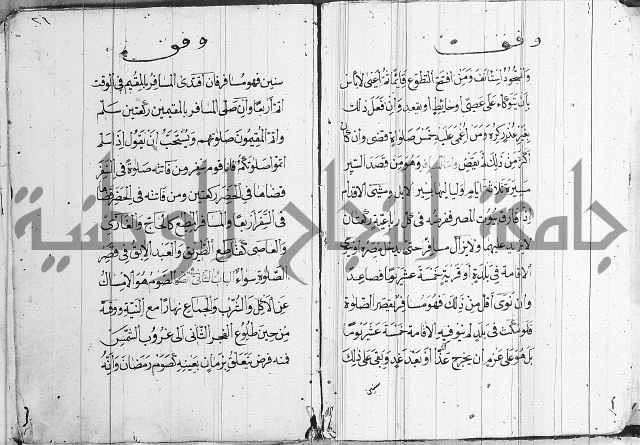 وقف
والسجود استأنف ومن افتتح التطوع قائما ثم اعيى لا بأس
بان يتوكاء على عصى او حايط او يقعد وان فعل ذلك
بغير عذر كره ومن أغمى عليه خمس صلوة قضى وان كان
اكثر من ذلك لم يقض وهو من قصد السير
مسيرة ثلاثة ايام ولياليها بسير الابل ومشى الاقدام
اذا فارق بيوت المصر ففرضه فى كل رباعية ركعتان
لا يزيد عليهما ولا يزال مسافر حتى يدخل مصره او ينوي
الاقامة في بلدة او قرية خمسة عشر يوما فصاعدا
وان نوى اقل من ذلك فهو مسافر لقصر الصلوة
فلو مكث في بلد لم ينو فيه الاقامة خمسة عشر يوما
بل هو على عزم ان يخرج غدا او بعد غد وبقى على ذلك
سنين
٢٦
وقف
سنين فهو مسافر فان اقتدى المسافر بالمقيم في الوقت
اتم اربعا وان صلى المسافر بالمقيمين ركعتين سلم
واتم المقيمون صلوتهم ويستحب ان يقول اذ سلم
اتموا صلوتكم فانا قوم سفر ومن فاتته صلوة في السفر
قضاها في الحضر ركعتين ومن فاتته في الحضر قضاها
في السفر اربعا والمسافر المطيع كالحاج والغازي
والعاصى كقاطع الطريق والعبد الابق في قصر
الصلوة سواء الصوم هو الامساك
عن الاكل والشرب والجماع نهارا مع النية ووقته
من حين طلوع الفجر الثانى الى غروب الشمس
فمنه فرض يتعلق بزمان بعينه كصوم رمضان وانه
جامعة النجاح الوطنية